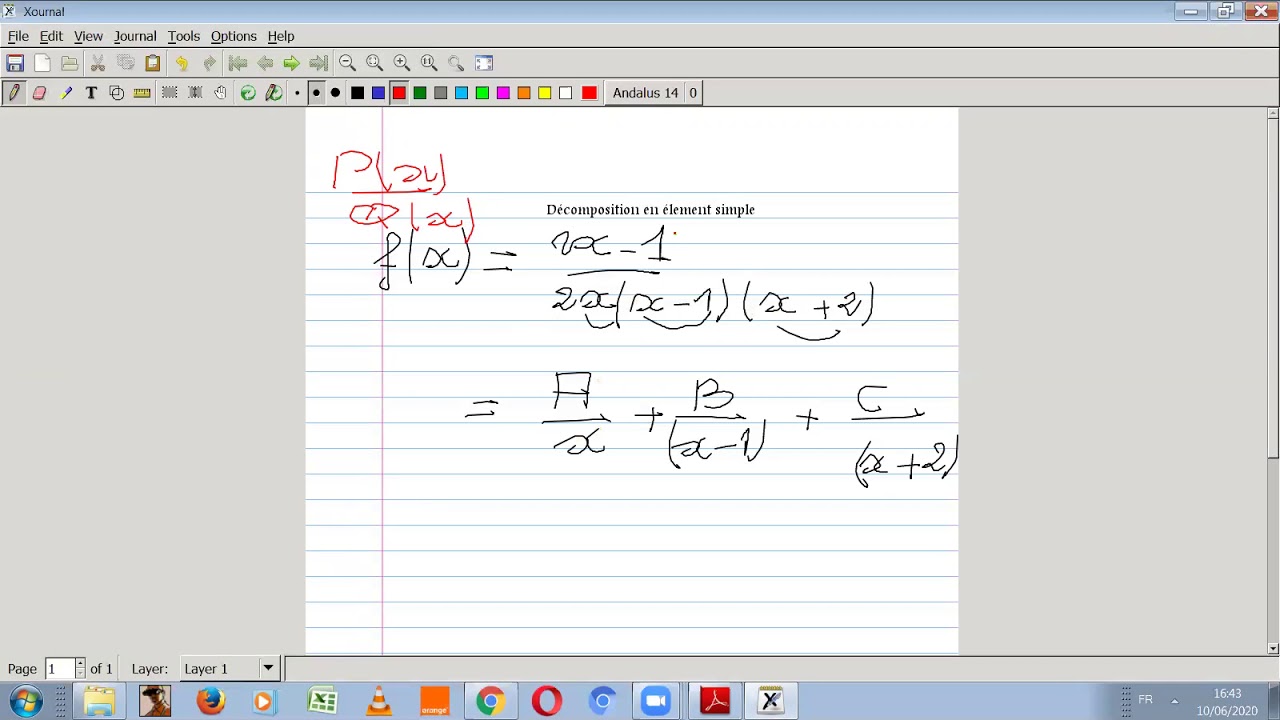 Xournal
File Edit View Journal Tools Options Help
Andalus 14 0
P(x)
Q(x)
Décomposition en élement simple
f(x) = 2x - 1
2x(x - 1)(x + 2)
= A + B + C
x (x - 1) (x + 2)
Page 1 of 1 Layer: Layer 1
orange
FR
16:43
10/06/2020